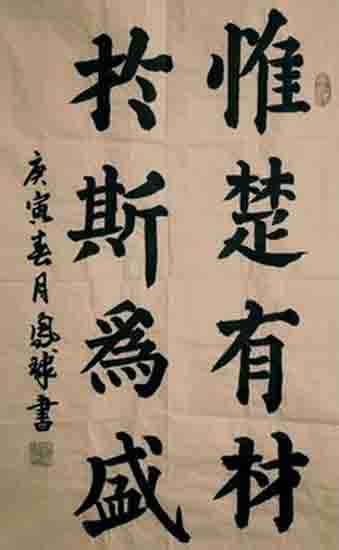 惟楚有材
於斯爲盛
庚寅春月鳳球書